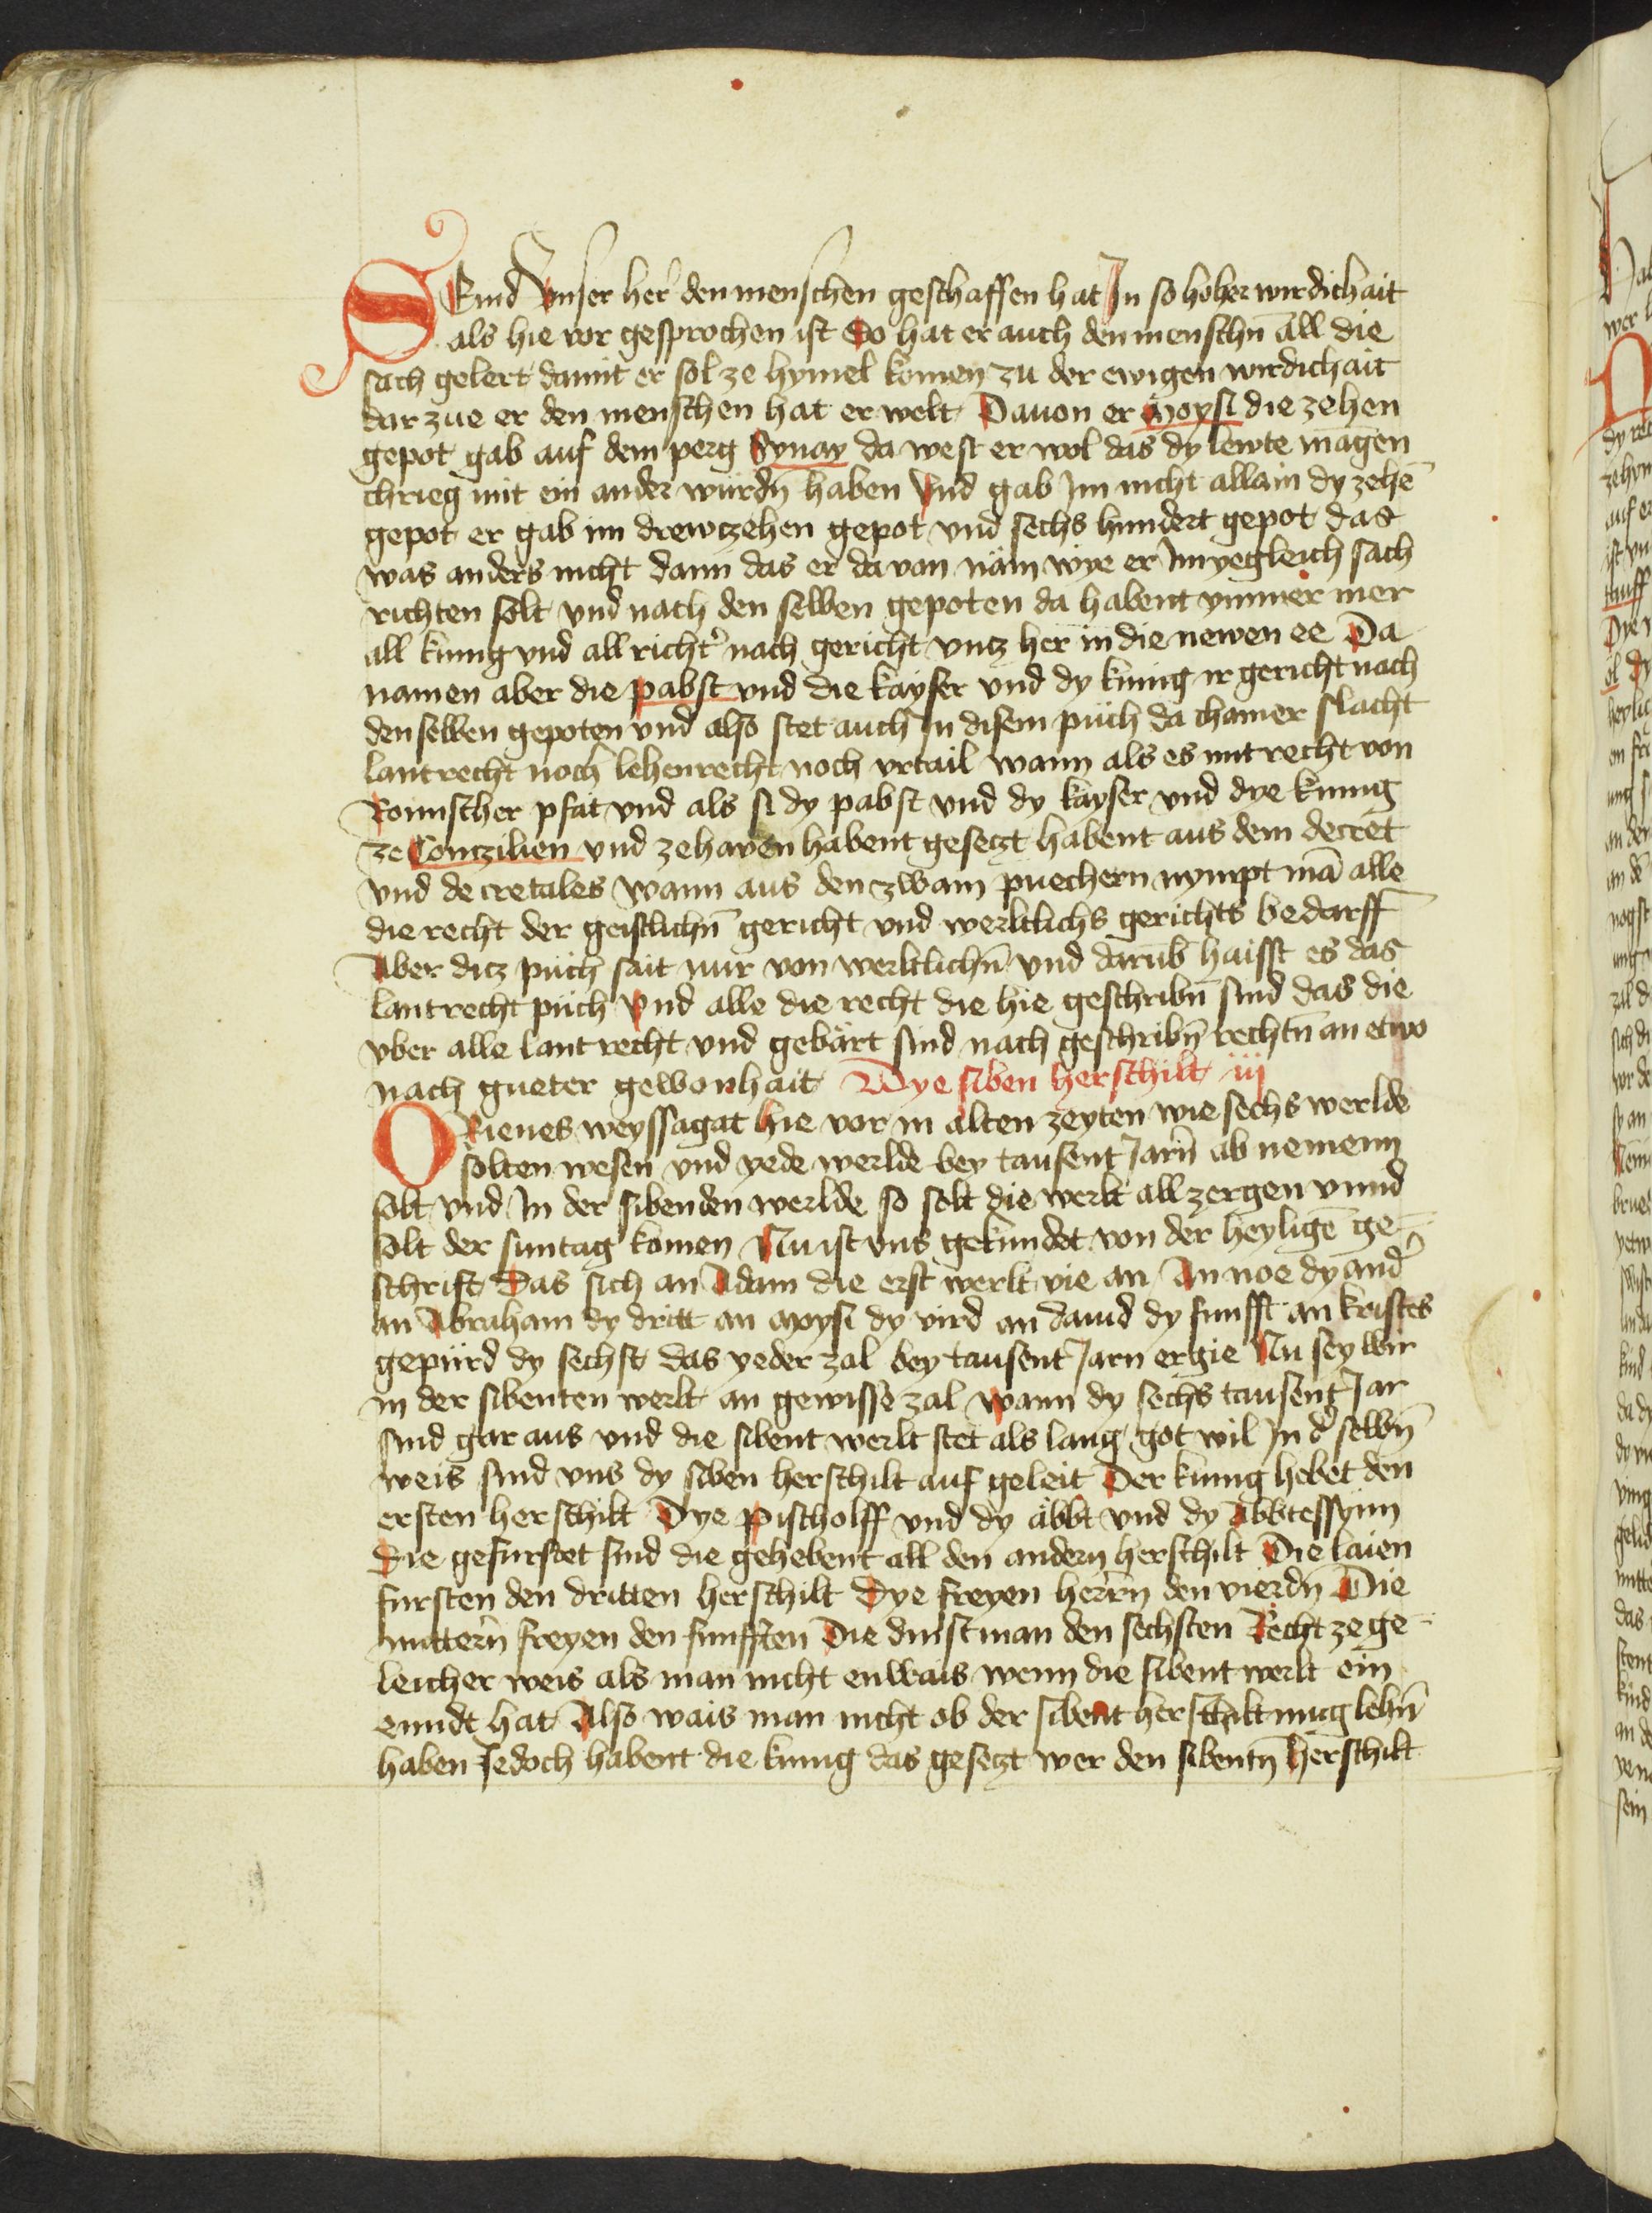 SEind Vnser her den menschen geschaffen hat In so hoher wirdichait
als hie vor gesprochen ist So hat er auch den menschn all die
sach gelert damit er sol ze hymel komen zu der ewigen wirdichait
dar zue er den menschen hat er welt Dauon er Moysi die zehen
gepot gab auf dem perg Synay da west er wol das dy lewte magen
chrieg mit ein ander wurdn̄ haben Vnd gab Im nicht allain dy zehē
gepot er gab im drewzehen gepot vnd sechs hundert gepot das
was anders nicht dann das er da von näm wye er Im yegleich sach
richten solt vnd nach den selben gepoten da habent ymmer mer
all kunig vnd all richt' nach gericht vntz her in die newen ee Da
namen aber die pabst vnd die kayser vnd dy kunig ir gericht nach
den selben gepoten vnd also stet auch In disem puch da chainer slacht
lantrecht noch lehenrecht noch vrtail wann als es mit recht von
Romischer pfat vnd als si dy pabst vnd dy kayser vnd dye kunig
ze Conczilien vnd ze haven habent gesetzt habent aus dem decret
vnd decretales wann aus den zwain puechern nympt mā alle
die recht der geistlichn̄ gericht vnd werltlichs gerichts bedarff
Aber ditz puch sait nur von werltlichn̄ vnd darūb haisst es das
lantrecht puch Vnd alle die recht die hie geschribn̄ sind das die
vber alle lant recht vnd gebärt sind nach geschribn̄ rechtn̄ an etwo
nach gueter gewonhait Dye siben herschilt iij
ORienes weyssagat hie vor in alten zeyten wie sechs werlde
solten wesen vnd yede werlde bey tausent Jarn̄ ab nemenn
solt vnd In der sibenden werlde so solt die werlt all zergen vnnd
solt der suntag komen Nu ist vns gekundet von der heyligē ge-
schrift Das sich an Adam die erst werlt vie an An noe dy and'
an Abraham dy dritt an moysi dy vird an dauid dy funfft an kristes
gepurd dy sechst das yeder zal bey tausent Jarn ergie Nu sey wir
in der sibenten werlt an gewisse zal wann dy sechs tausent Jar
sind gar aus vnd die sibent werlt stet als lang got wil In d' selbn̄
weis sind vns dy siben herschilt auf geleit Der kunig hebet den
ersten herschilt Dye pischolff vnd dy äbbt vnd dy Abbtessynn
Die gefurstet sind die gehebent all den andern herschilt Die laien
fursten den dritten herschilt Dye freyen herrn̄ den vierdn̄ Die
mittern̄ freyen den funfften Die dinstman den sechsten Recht ze ge-
leicher weis als man nicht enwais wenn die sibent werlt ein
ennde hat Also wais man nicht ob der sibent herschilt mug lehn̄
haben Jedoch habent die kunig das gesetzt wer den sibentn̄ herschilt